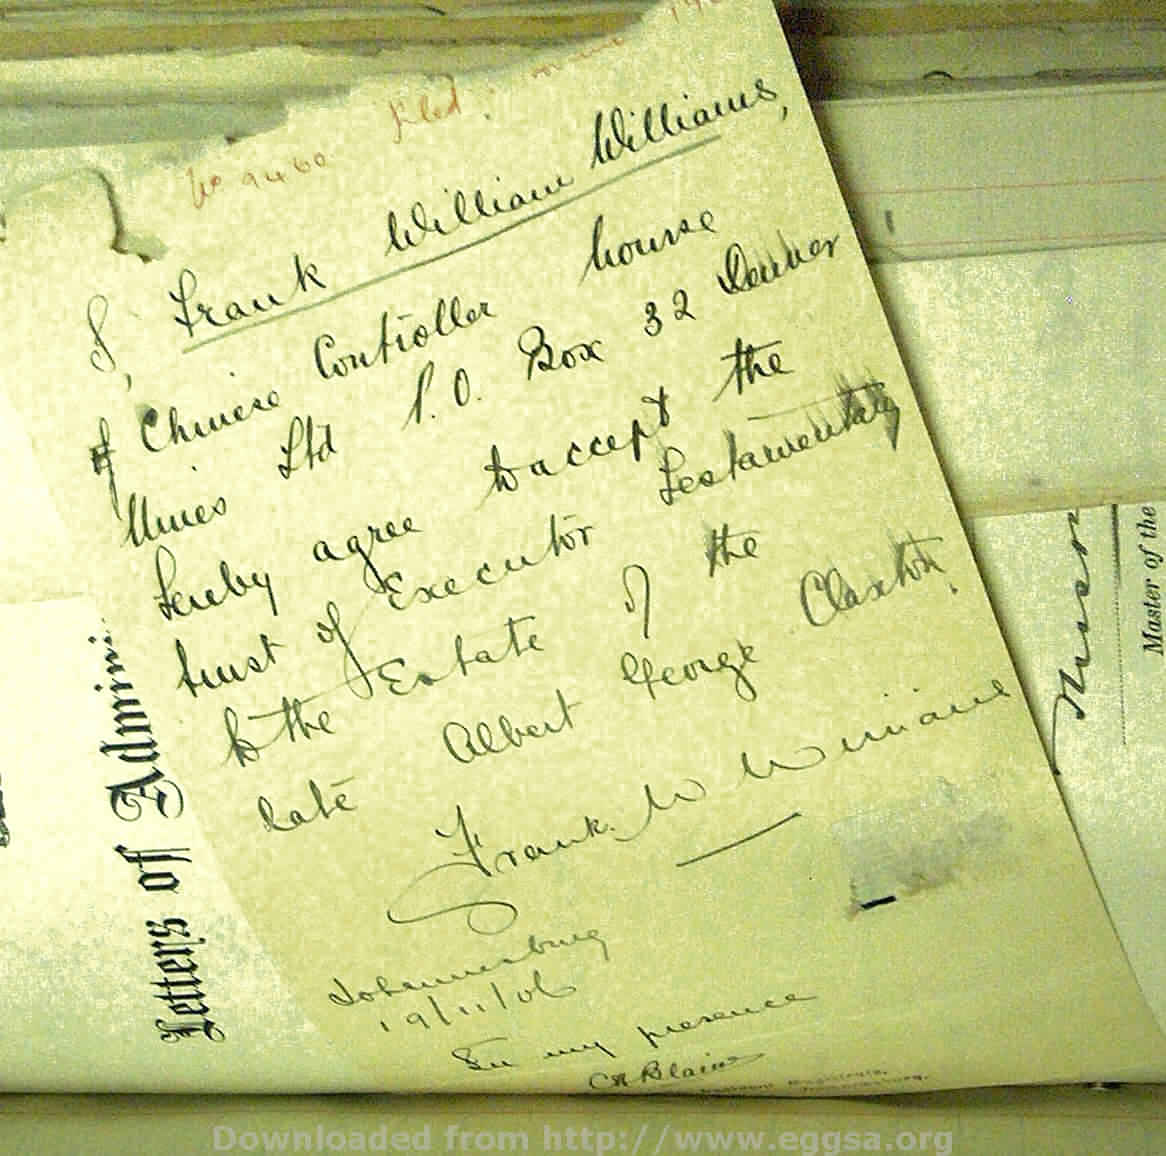 No 9460 Filed
I, Frank William Williams,
of Chinese Controller house
Mines Ltd P.O. Box 32 Denver
hereby agree to accept the
trust of Executor Testamentary
to the Estate of the
late Albert George Claxton.
Frank W Williams
Johannesburg
19/11/06
In my presence
C H Blaine
Letters of Admini
Master of the
Downloaded from http://www.eggsa.org